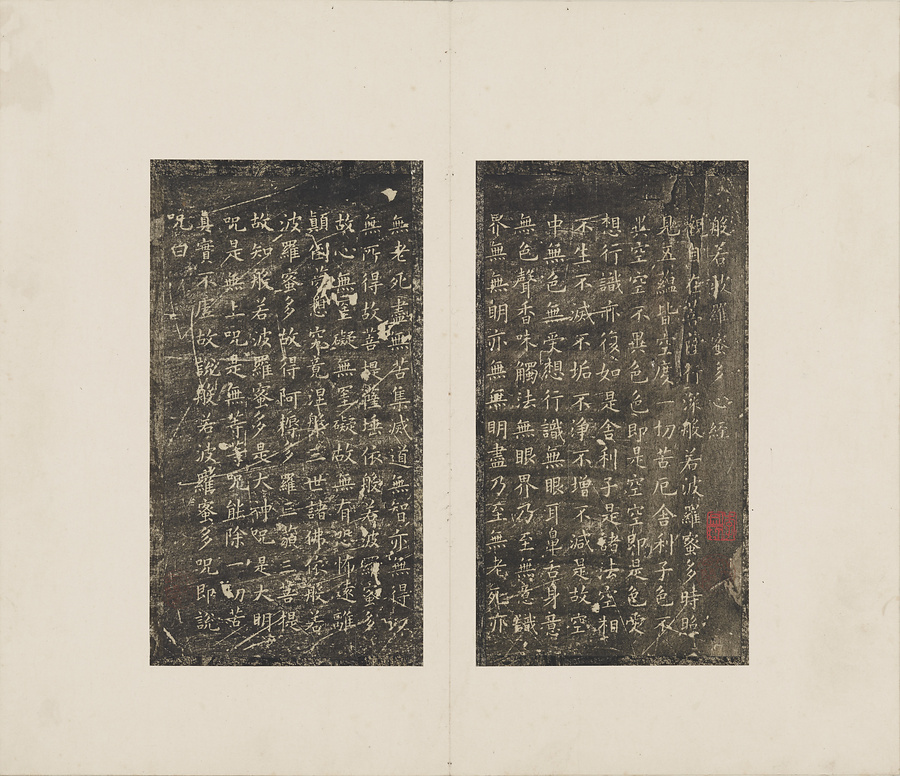 般若波羅蜜多心經
觀自在菩薩行深般若波羅蜜多時照
見五蘊皆空渡一切苦厄舍利子色不
空空不異色色即是空空即是色受
想行識亦復如是舍利子是諸法空相
不生不滅不垢不淨不增不減是故空
中無色無受想行識無眼耳鼻舌身意
無色聲香味觸法無眼界乃至無意識
界無無明亦無無明盡乃至無老死亦
無老死盡無苦集滅道無智亦無得以
無所得故菩提薩埵依般若波羅蜜多
故心無罣礙無罣礙故無有恐怖遠離
顛倒夢想究竟涅槃三世諸佛依般若
波羅蜜多故得阿耨多羅三藐三菩提
故知般若波羅蜜多是大神呪是大明
呪是無上呪是無等等呪能除一切苦
真實不虛故說般若波羅蜜多呪即說
呪曰